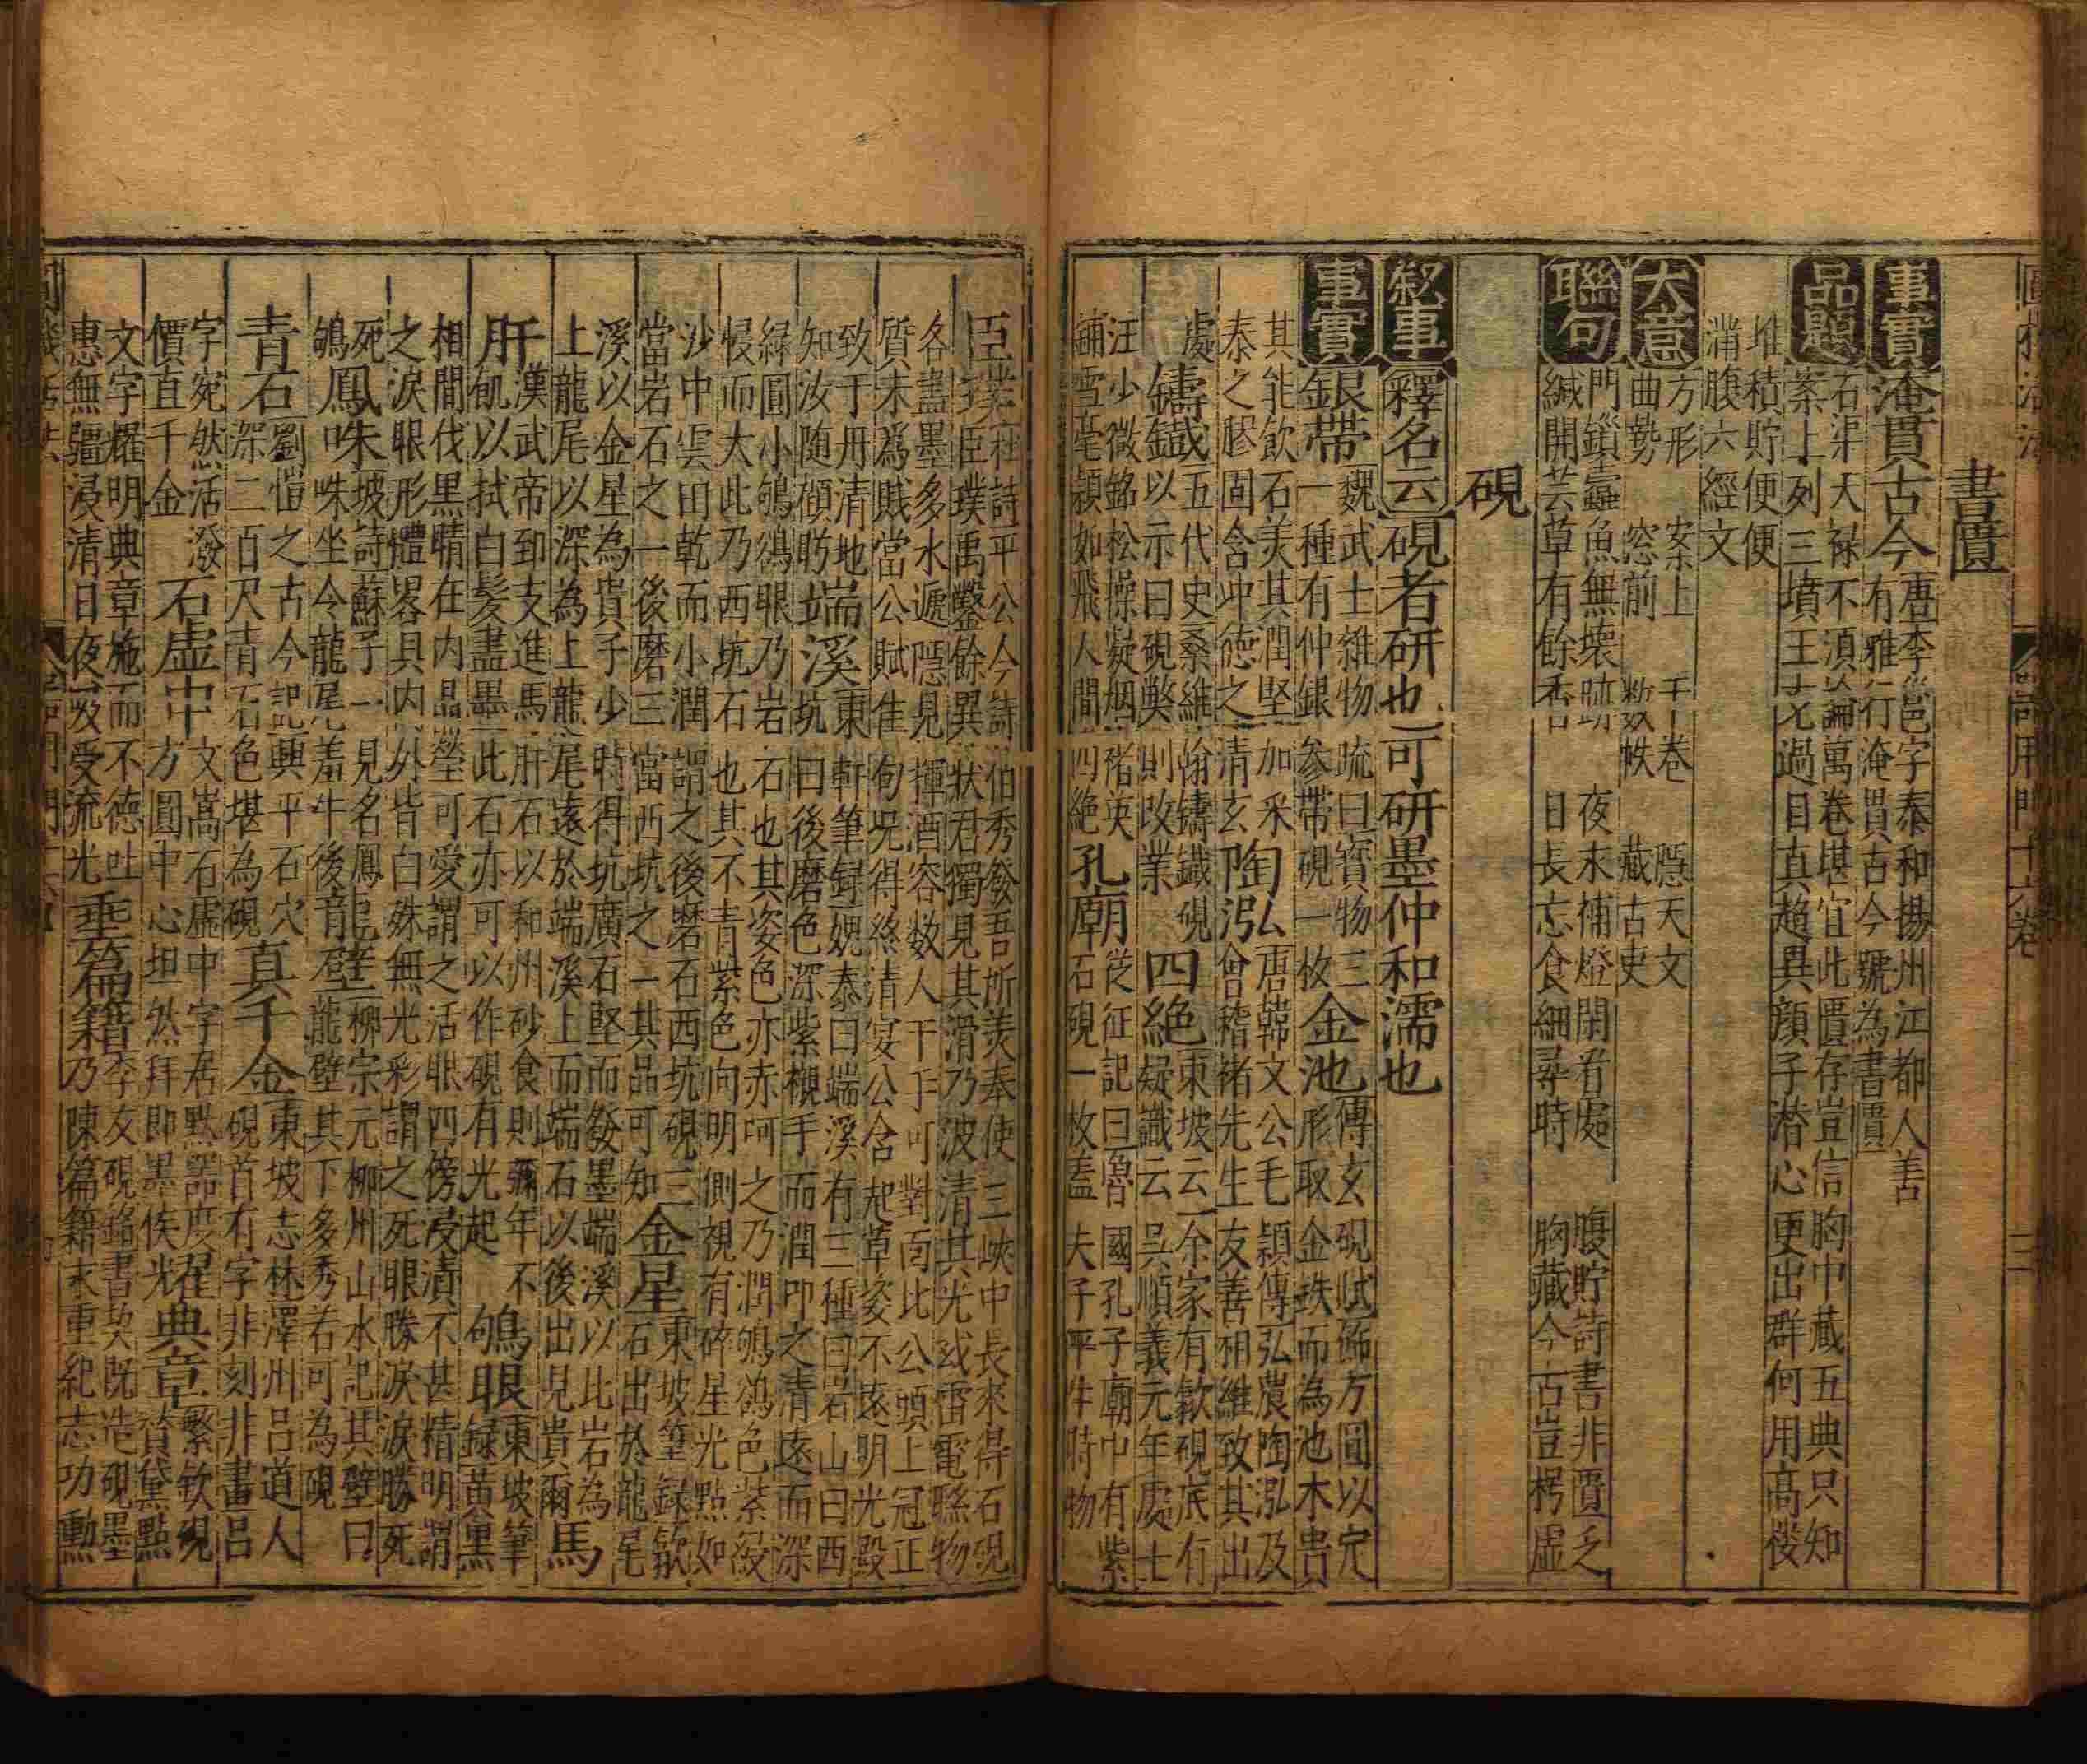 書匱
事實 淹貫古今 唐李邕字泰和揚州江都人善
有雅行淹貫古今號為書匱
品題 石渠天祿不須論萬卷堪宜此匱存豈信胸中藏五典只知
案上列三墳王充過目真趨異顔子潜心更出群何用高楼
堆積貯便便
滿腹六經文
大意 方形 案上 千卷 隱天文
曲勢 窓前 数帙 藏古史
聯句 門鎻蠹魚無壞跡 夜来補燈閑看處 腹貯詩書非匱乏
緘開芸草有餘香 日長忘食細尋時 胸藏今古豈枵虚
硯
叙事 釋名云硯者研也可研墨仲和濡也
事實 銀帶 魏武士雜物疏曰寳物三
一種有仲銀参帶硯一枚
金池 傳玄硯賦 方圓以定
形取金鉄而為池木貴
其能飲石美其潤堅加采
泰之膠固含冲德之清玄
陶泓 唐韓文公毛頴傳弘農陶泓及
會稽褚先生友善相維致其出
處 鑄鐵 五代史桑維翰鑄鐵硯
以示曰硯弊則改業
四絶 東坡云余家有歙硯底有
疑識云吳順義元年處士
汪少微銘松操凝烟楮英
鋪雪毫頴如飛人間四絶
孔廟 從征記曰魯國孔子廟中有紫
石硯一枚蓋夫子平生時物
臣璞 杜詩平公今詩伯秀發吾所羨奉使三峽中長來得石硯
臣璞禹鑿餘異狀君獨見其滑乃波清其光或雷電聮物
各盡墨多水遞隱見揮洒容数人十手可對面比公頭上冠正
質未爲賎當公賦佳句况得終清宴公含起草姿不遠明光殿
致于丹清地
知汝随顧盻
端溪 東軒筆録 泰曰端溪有三種曰岩山曰西
坑曰後磨色深紫襯手而潤叩之清遠而深
緑圓小鴝鵒眼乃岩石也其姿色亦赤呵之乃潤鴝鵒色紫
慢而大此乃西坑石也其不青紫色向明側視有碎星光點如
沙中雲田乾而小潤謂之後磨石西坑硯三
當岩石之一後磨三當西坑之一其品可知
金星 東坡筆録歙
石出於龍尾
溪以金星為貴予少時得坑廣石堅而發墨端溪以比岩為
上龍尾以深為上龍尾遠於端溪上而端石以後出見貴爾
馬肝 漢武帝郅支進馬肝石以和州砂食則彌年不
以拭白髮盡黑此石亦可以作硯有光起
鴝眼 東坡筆
録黃黒
相間伐黒睛在内晶瑩可愛謂之活眼四傍浸漬不甚精明謂
之淚眼形體畧具内外皆白殊無光彩謂之死眼勝淚淚勝死
死
鴝
鳳咮 坡詩蘇子一見名鳳
咮坐令龍尾羞牛後
龍壁 柳宗元柳州山水記其壁曰
龍壁其下多秀石可為硯
青石 劉愷之古今記興平石穴
深二百尺青石色堪為硯
真千金 東坡志林澤州吕道人
硯首有字非刻非畫吕
字宛然活潑
價直千金
石虚中 文嵩石虚中字居黙器度
方圓中心坦然拜即墨侯光
典章 繁欽硯
賛黛點
文字耀明典章施而不德吐
惠無疆浸清日夜吸受流光
垂篇籍 李友硯銘書契既造硯墨
乃陳篇籍末垂紀志功勳